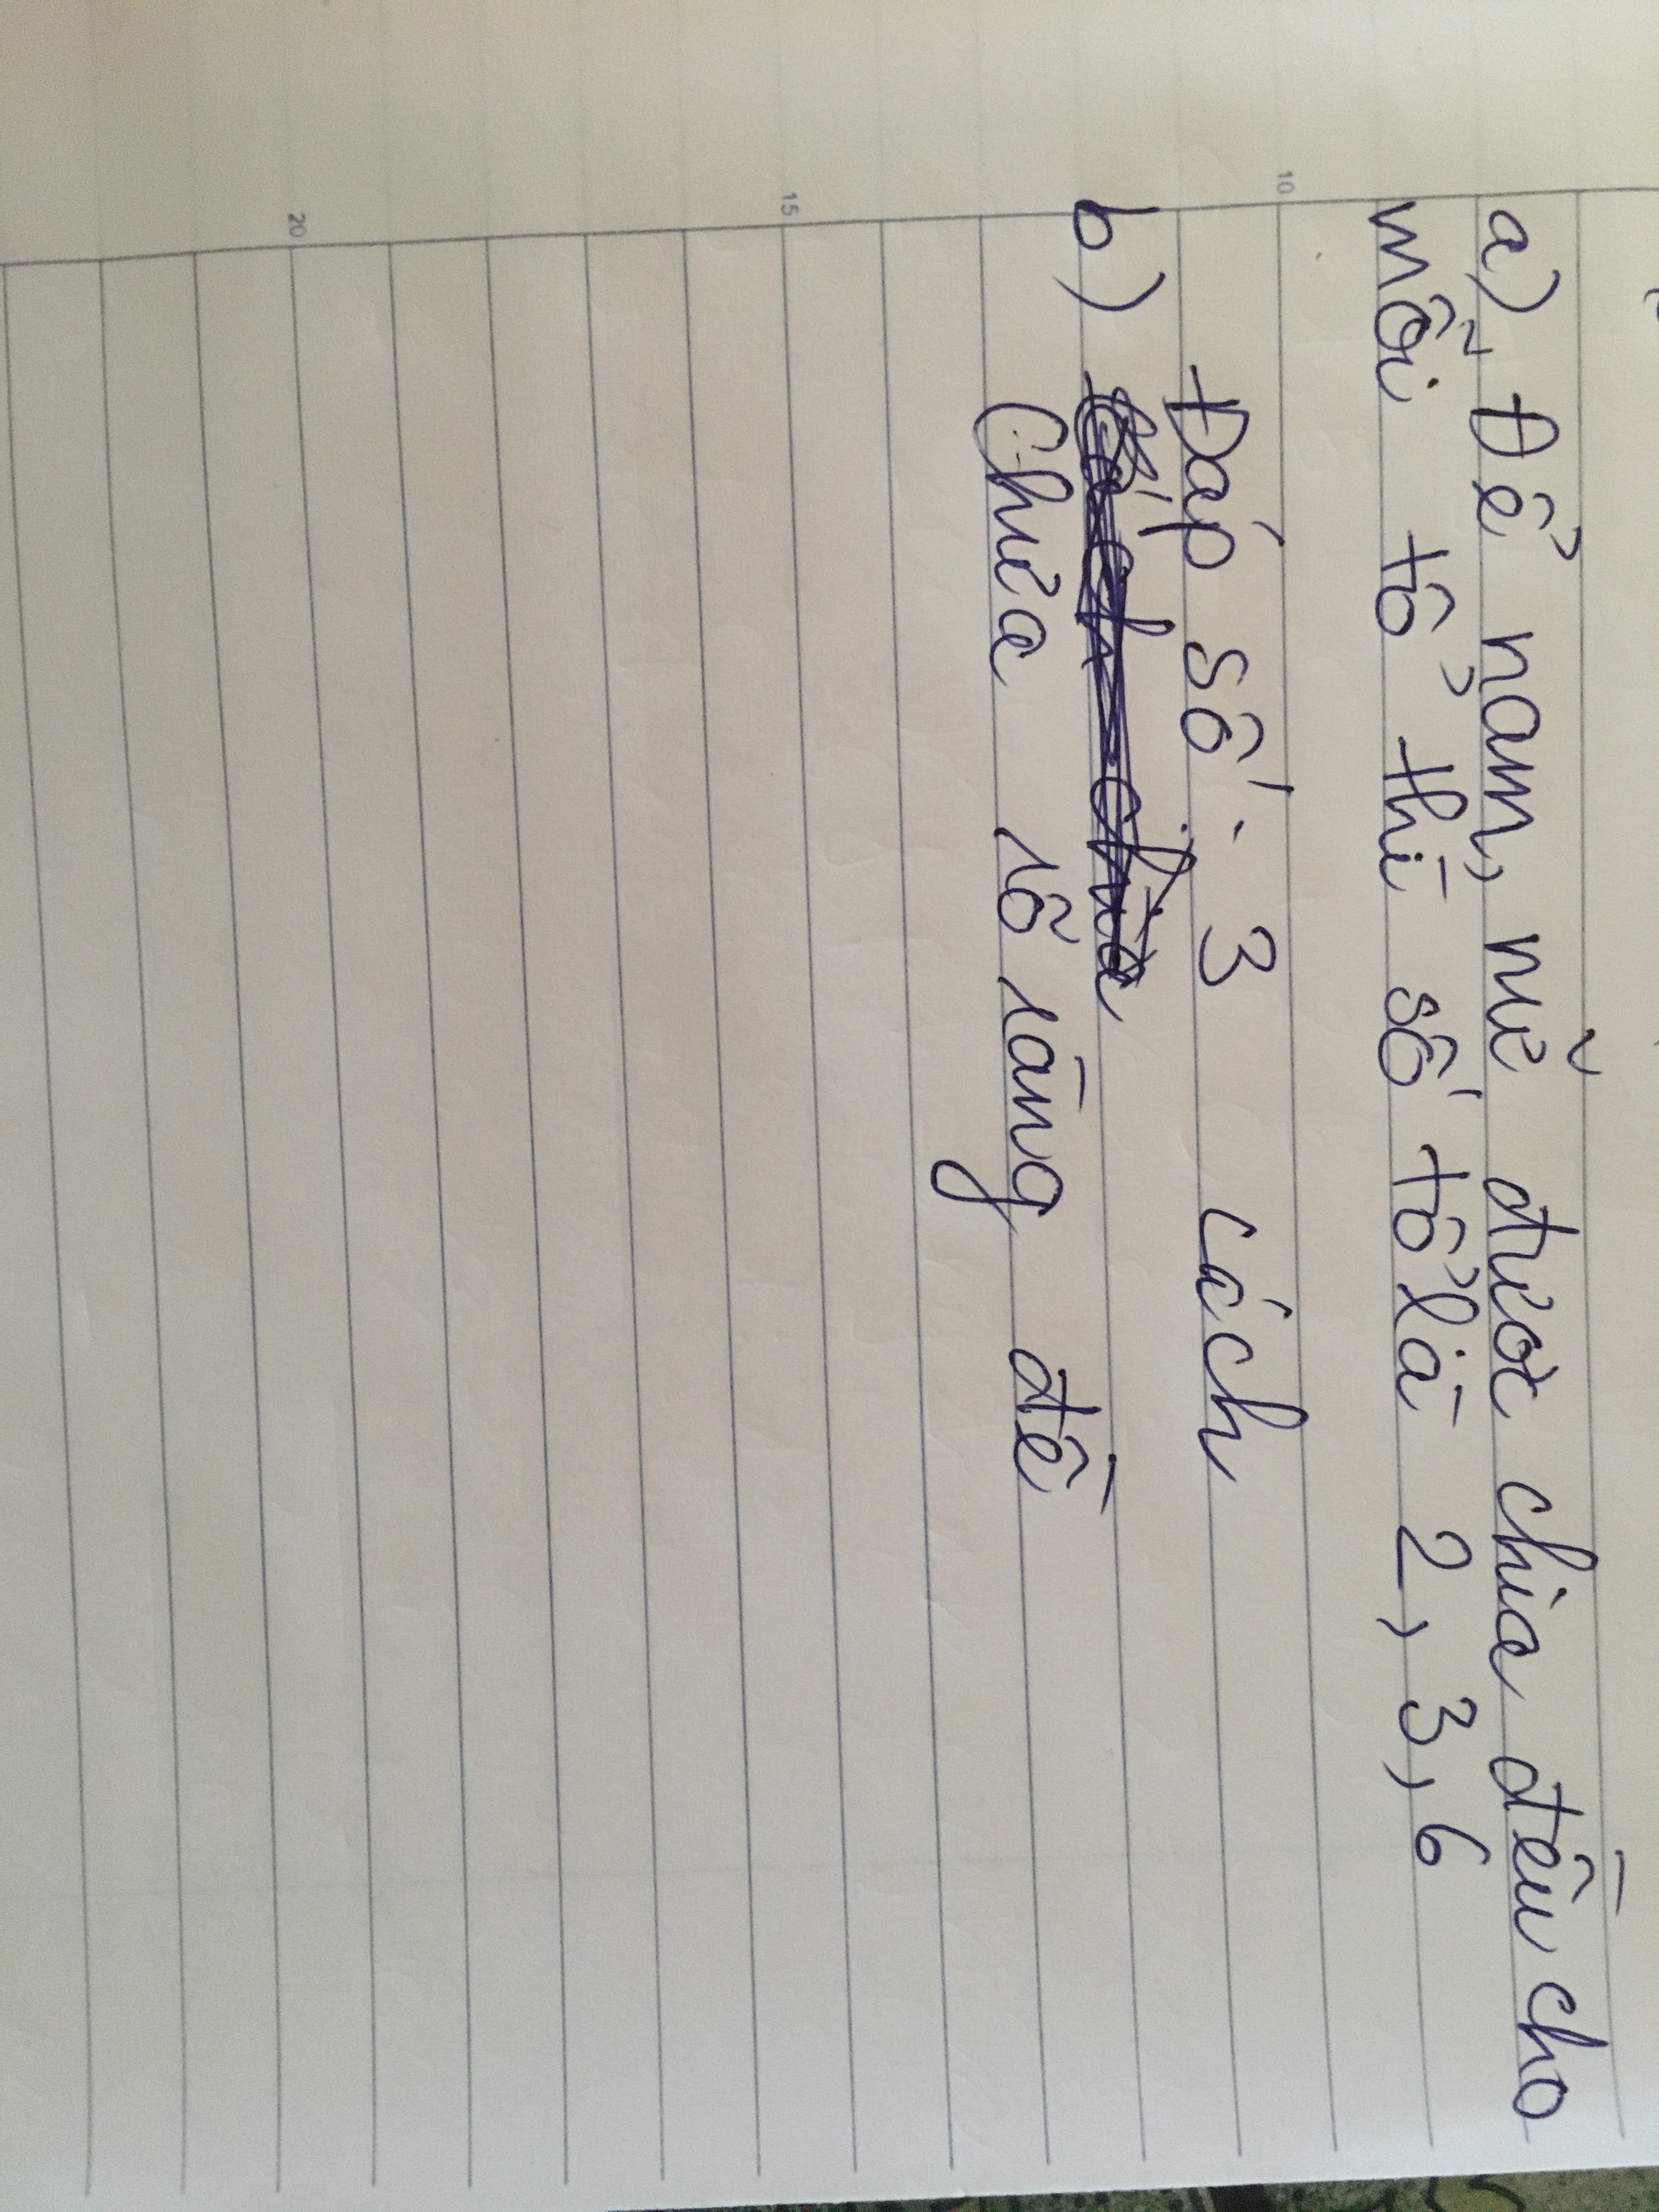 a) Để nam, nữ được chia đều cho
mỗi tổ thì số tổ là 2, 3, 6
10
Đáp số: 3 cách
b)
Chưa rõ ràng đề
15
20